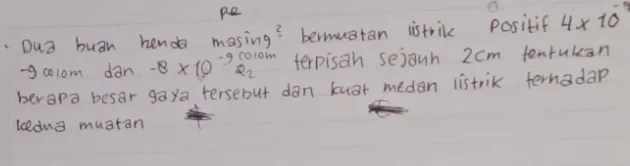 Dua buah benda masing² bermuatan listrik Positif 4 x 10⁻⁹
-9 colom dan -8 x 10⁻⁹ colom terpisah sejauh 2cm tentukan
Q₂
berapa besar gaya tersebut dan kuat medan listrik terhadap
kedua muatan